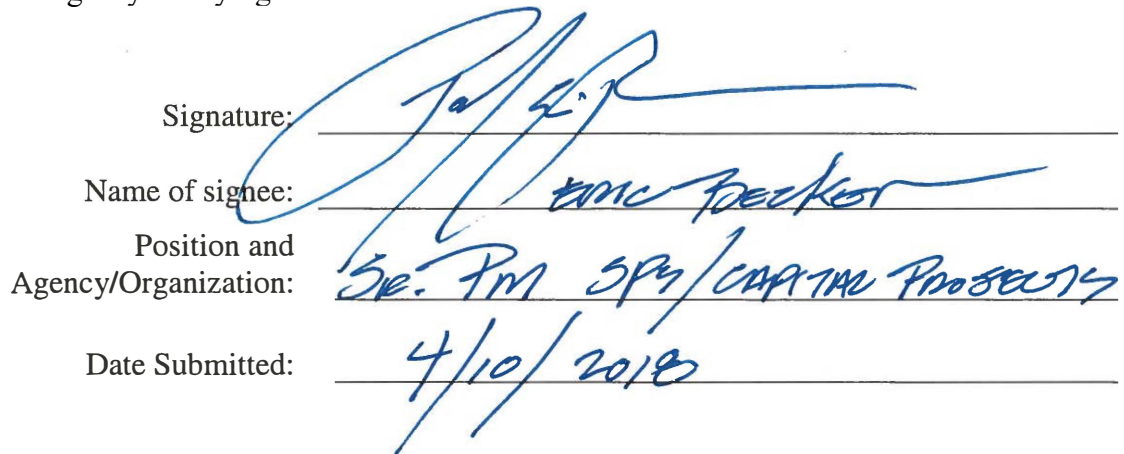 Signature:
Name of signee: Eric Becker
Position and
Agency/Organization: Sr. PM SPS/Capital Projects
Date Submitted: 4/10/2018